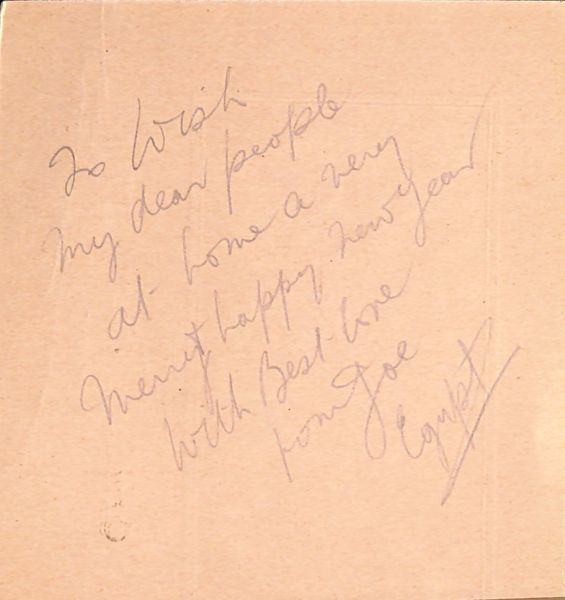 To Wish
my dear people
at home a very
merry & happy new year
with Best love
from Joe
Egypt